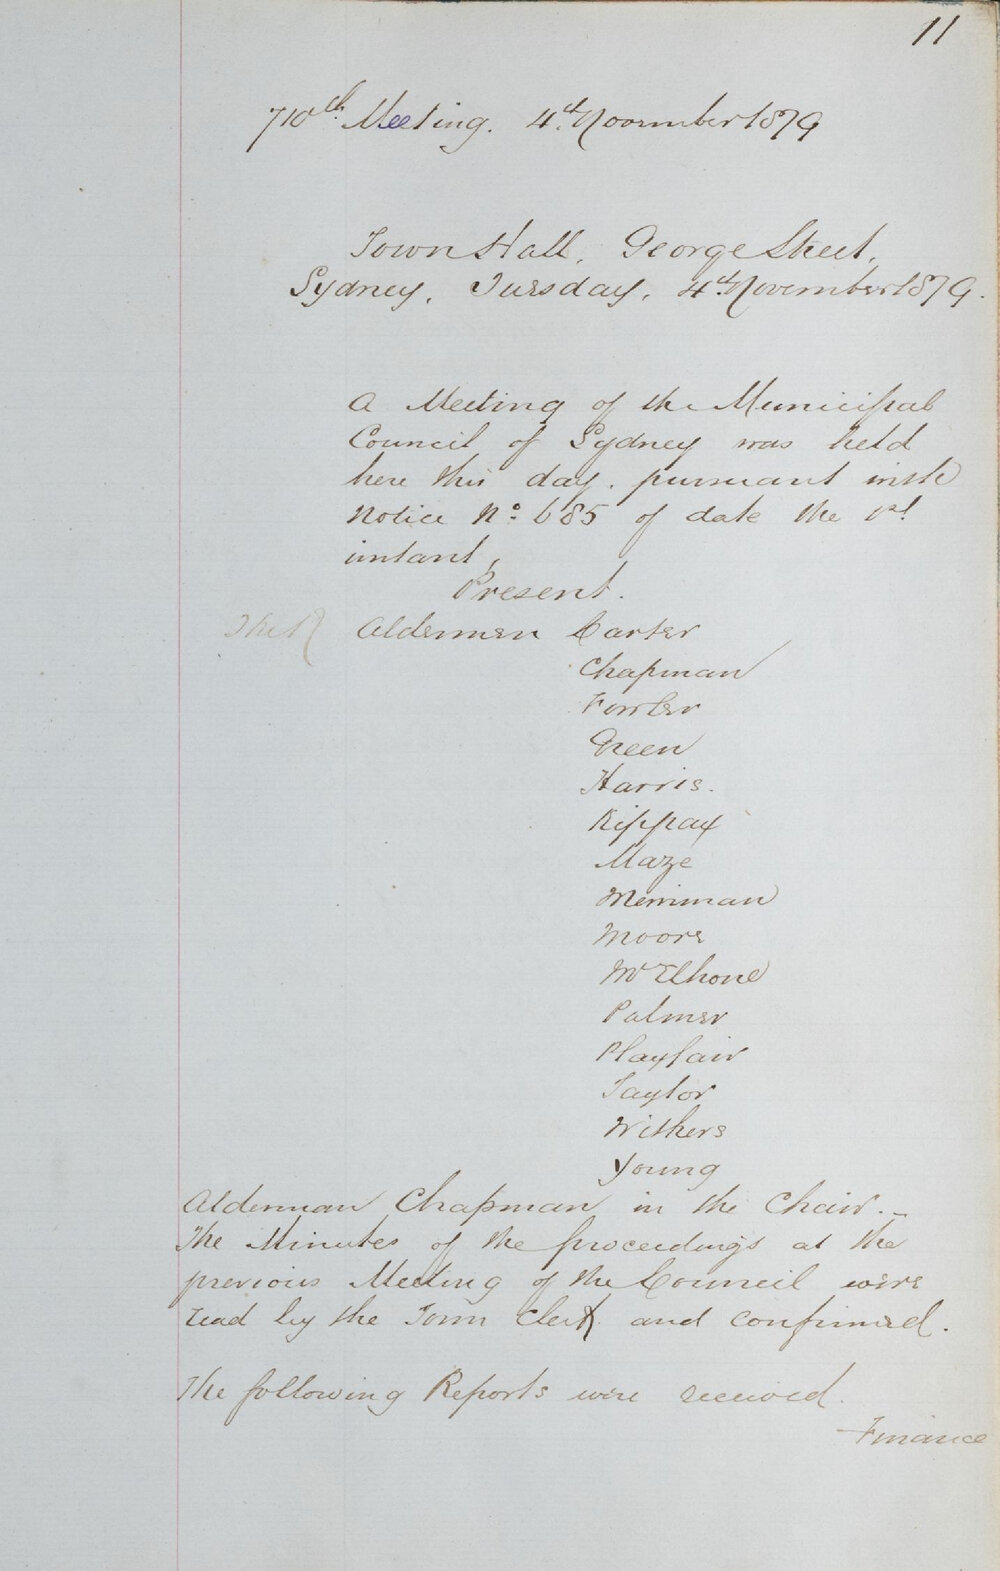 11
710th Meeting. 4th Novembr 1879
Town Hall, George Street,
Sydney, Tuesday, 4th November 1879.
A Meeting of the Municipal
Council of Sydney was held
here this day. pursuant instr
Notice No. 685 of date the 1st.
intant,
Present.
Aldermen Carter
Chapman
Fowler
Green
Harris.
Kippax
Maze
Merriman
Moore
McElhone
Palmer
Playfair
Taylor
Withers
Young
Alderman Chapman in the Chair. -
The Minutes of the proceedings at the
previous Meeting of the Council were
read by the Town Clerk and confirmed.
The following Reports were received.
Finance